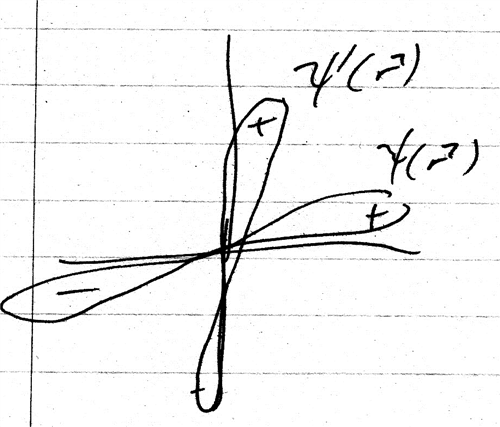 ψ'(r⃗)
+
ψ(r⃗)
+
−
-